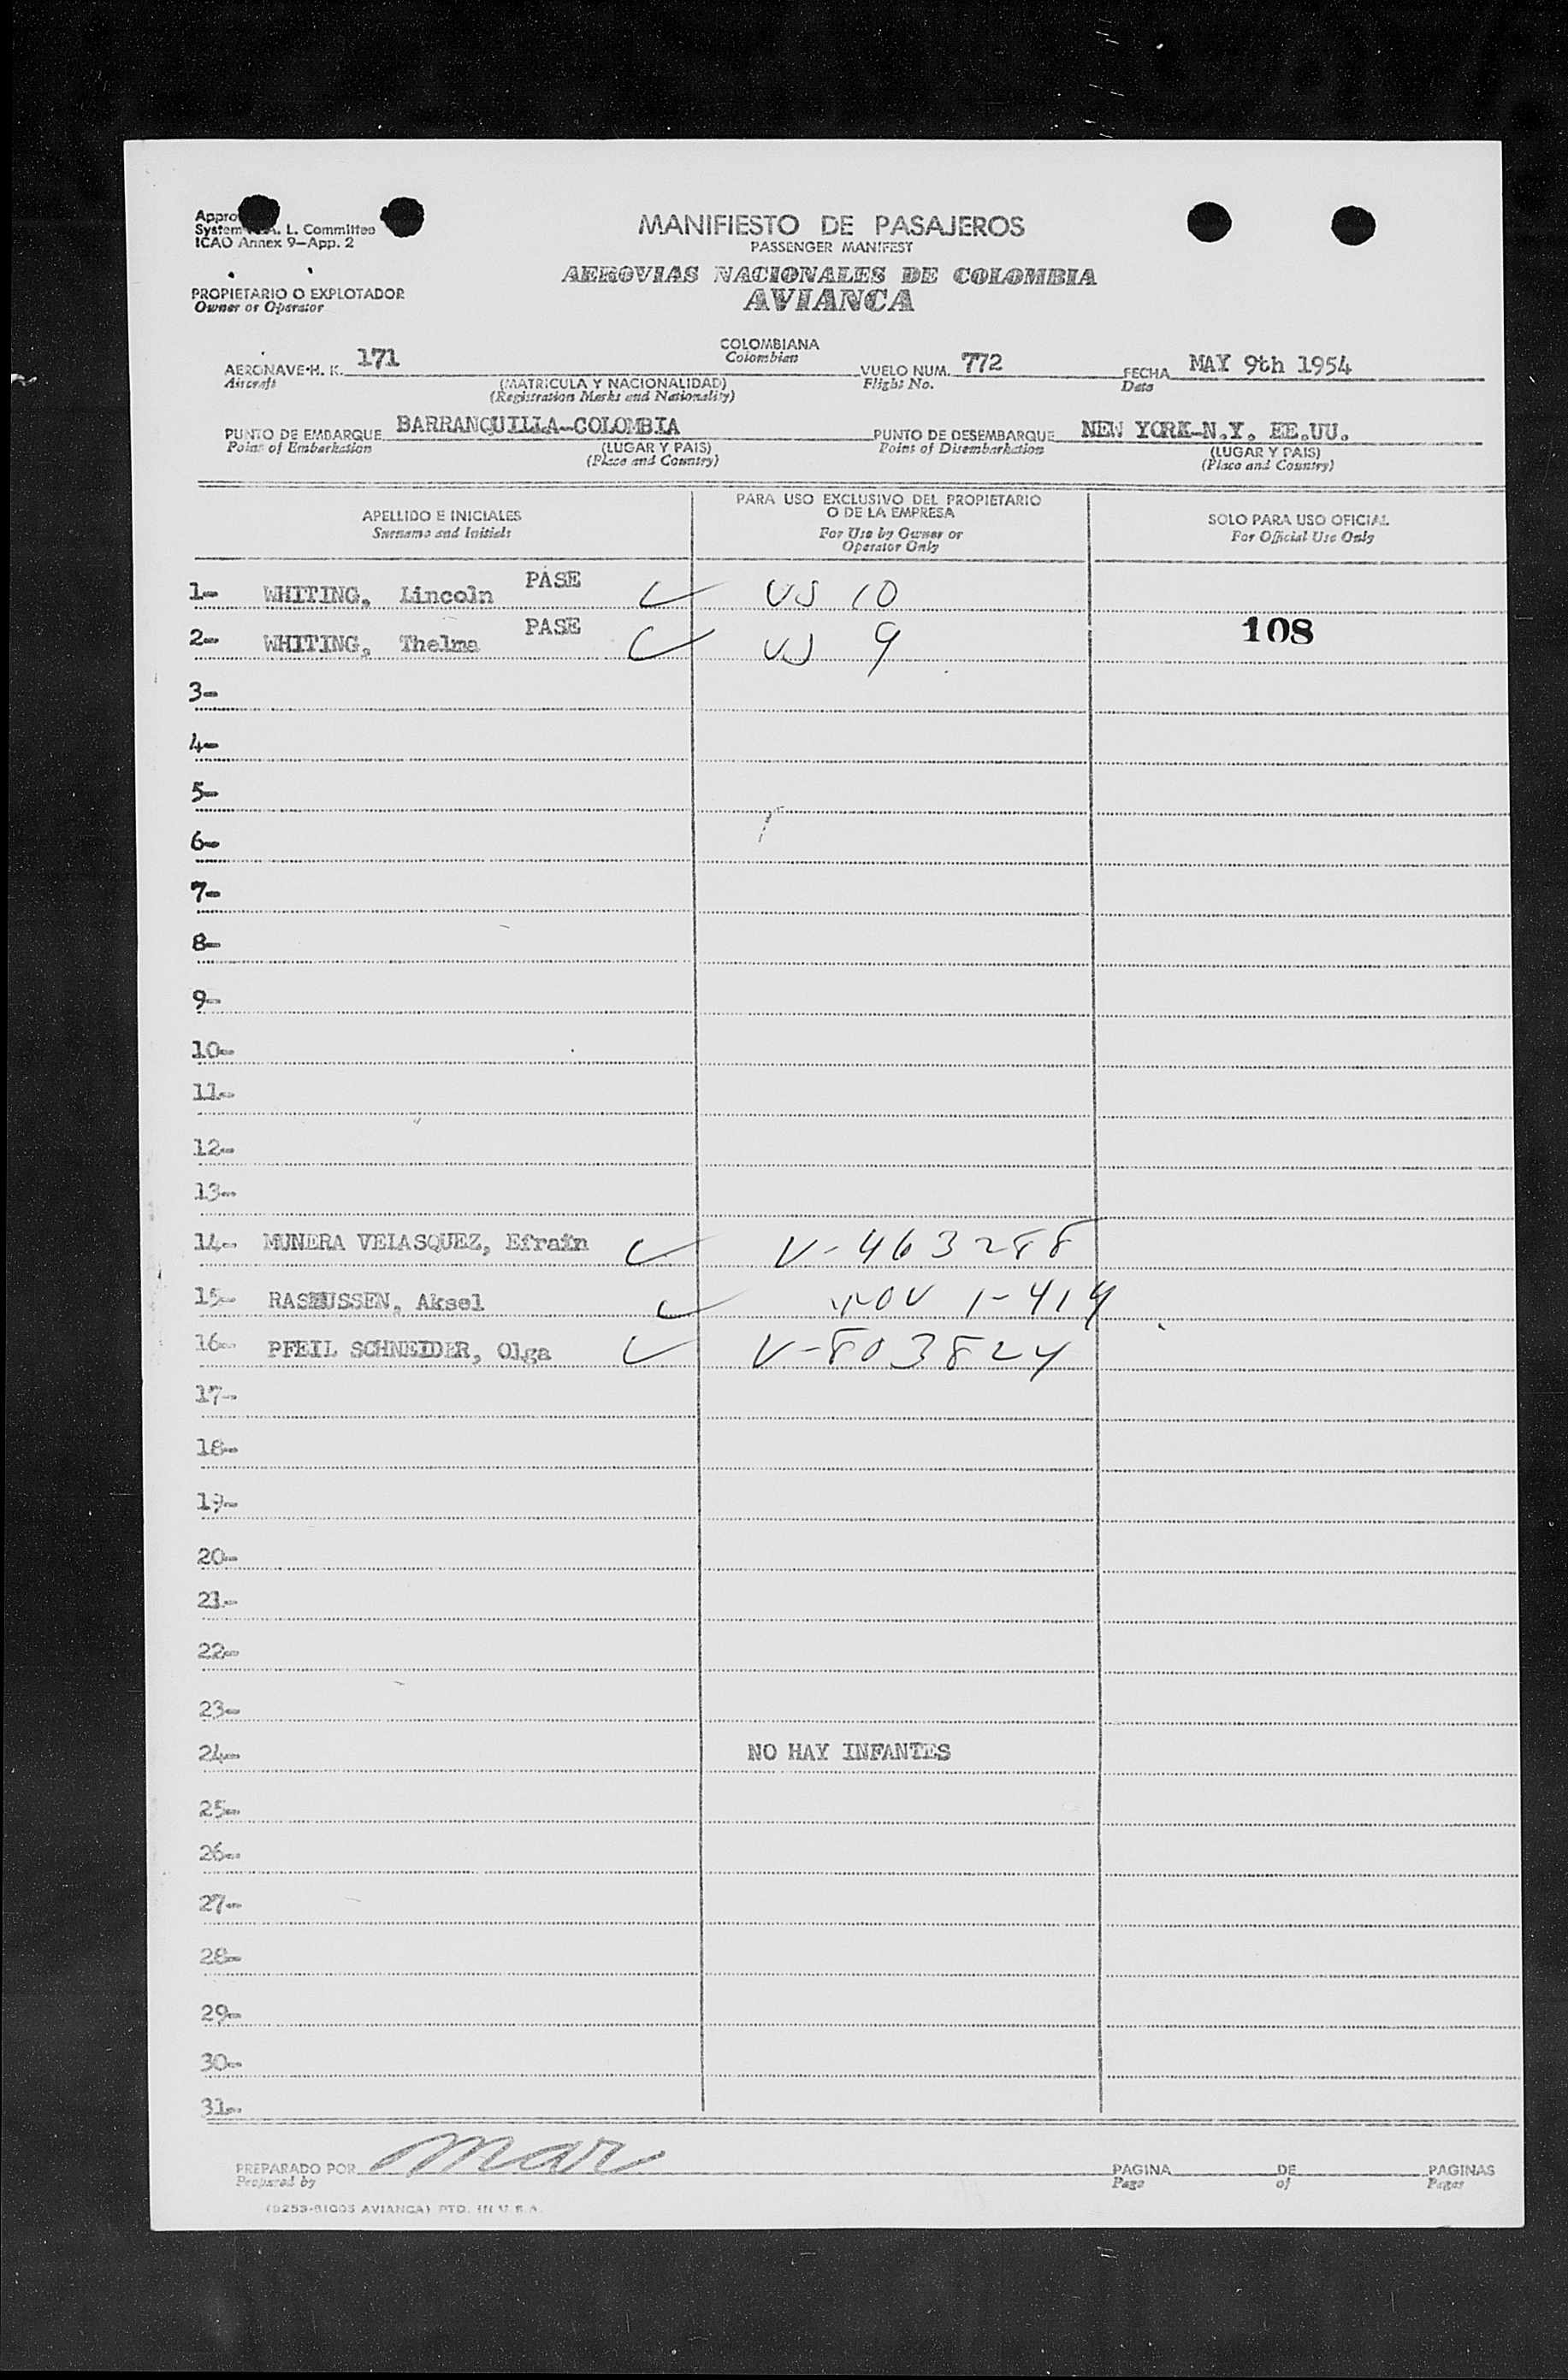 System A. L. Committee
ICAO Annex 9-App. 2
MANIFIESTO DE PASAJEROS
PASSENGER MANIFEST
AEROVIAS NACIONALES DE COLOMBIA
AVIANCA
PROPIETARIO O EXPLOTADOR
Owner or Operator
AERONAVE-H. K. 171 COLOMBIANA VUELO NUM. 772 FECHA MAY 9th 1954
Aircraft Colombian Flight No. Date
(MATRICULA Y NACIONALIDAD)
(Registration Marks and Nationality)
PUNTO DE EMBARQUE BARRANQUILLA-COLOMBIA PUNTO DE DESEMBARQUE NEW YORK-N.Y. EE.UU.
Point of Embarkation (LUGAR Y PAIS) Point of Disembarkation (LUGAR Y PAIS)
(Place and Country) (Place and Country)
APELLIDO E INICIALES
Surname and Initials
PARA USO EXCLUSIVO DEL PROPIETARIO
O DE LA EMPRESA
For Use by Owner or
Operator Only
SOLO PARA USO OFICIAL
For Official Use Only
1- WHITING, Lincoln PASE US 10
2- WHITING, Thelma PASE US 9 108
3-
4-
5-
6-
7-
8-
9-
10-
11-
12-
13-
14- MUNERA VELASQUEZ, Efrain V-463288
15- RASMUSSEN, Aksel 1-414
16- PFEIL SCHNEIDER, Olga V-803824
17-
18-
19-
20-
21-
22-
23-
24- NO HAY INFANTES
25-
26-
27-
28-
29-
30-
31-
PREPARADO POR mar PAGINA DE PAGINAS
Prepared by Page of Pages
AVIANCA) PTD. IN U.S.A.